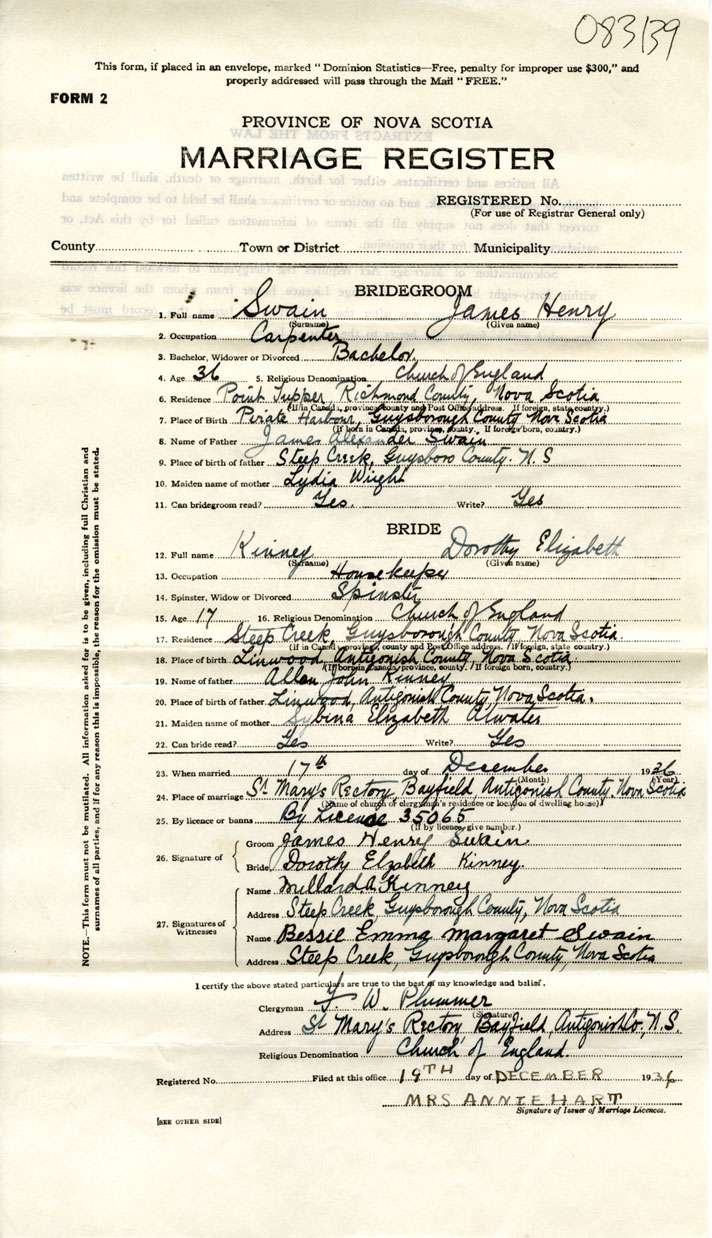 083139
This form, if placed in an envelope, marked "Dominion Statistics—Free, penalty for improper use $300," and
properly addressed will pass through the Mail "FREE."
FORM 2
PROVINCE OF NOVA SCOTIA
MARRIAGE REGISTER
REGISTERED No.
(For use of Registrar General only)
County Town or District Municipality
BRIDEGROOM
1. Full name Swain James Henry
(Surname) (Given name)
2. Occupation Carpenter
3. Bachelor, Widower or Divorced Bachelor
4. Age 36 5. Religious Denomination Church of England
6. Residence Point Tupper, Richmond County, Nova Scotia
(If in Canada, province, county and Post Office address. If foreign, state country.)
7. Place of Birth Pirate Harbour, Guysborough County Nova Scotia
(If born in Canada, province, county. If foreign born, country.)
8. Name of Father James Alexander Swain
9. Place of birth of father Steep Creek, Guysboro County. N.S
10. Maiden name of mother Lydia Wright
11. Can bridegroom read? Yes. Write? Yes
BRIDE
12. Full name Kinney Dorothy Elizabeth
(Surname) (Given name)
13. Occupation Housekeeper
14. Spinster, Widow or Divorced Spinster
15. Age 17 16. Religious Denomination Church of England
17. Residence Steep Creek, Guysborough County Nova Scotia.
(If in Canada, province, county and Post Office address. If foreign, state country.)
18. Place of birth Linwood, Antigonish County, Nova Scotia.
(If born in Canada, province, county. If foreign born, country.)
19. Name of father Allan John Kinney
20. Place of birth of father Linwood, Antigonish County, Nova Scotia.
21. Maiden name of mother Sybina Elizabeth Atwater
22. Can bride read? Yes Write? Yes
23. When married 17th day of December 1936
(Month) (Year)
24. Place of marriage St Mary's Rectory, Bayfield Antigonish County. Nova Scotia
(Name of church or clergyman's residence or location of dwelling house)
25. By licence or banns By Licence 35065
(If by licence, give number.)
26. Signature of
Groom James Henry Swain
Bride Dorothy Elzabeth Kinney.
27. Signatures of Witnesses
Name Millard A Kinney
Address Steep Creek Guysborough County, Nova Scotia
Name Bessie Emma Margaret Swain
Address Steep Creek, Guysborough County, Nova Scotia
I certify the above stated particulars are true to the best of my knowledge and belief.
Clergyman F. W. Plummer
(Signature)
Address St Mary's Rectory Bayfield, Antigonish Co., N.S.
Religious Denomination Church of England.
Registered No. Filed at this office 19TH day of DECEMBER 1936
MRS ANNIE HART
Signature of Issuer of Marriage Licences.
[SEE OTHER SIDE]
NOTE.—This form must not be mutilated. All information asked for is to be given, including full Christian and
surnames of all parties, and if for any reason this is impossible, the reason for the omission must be stated.